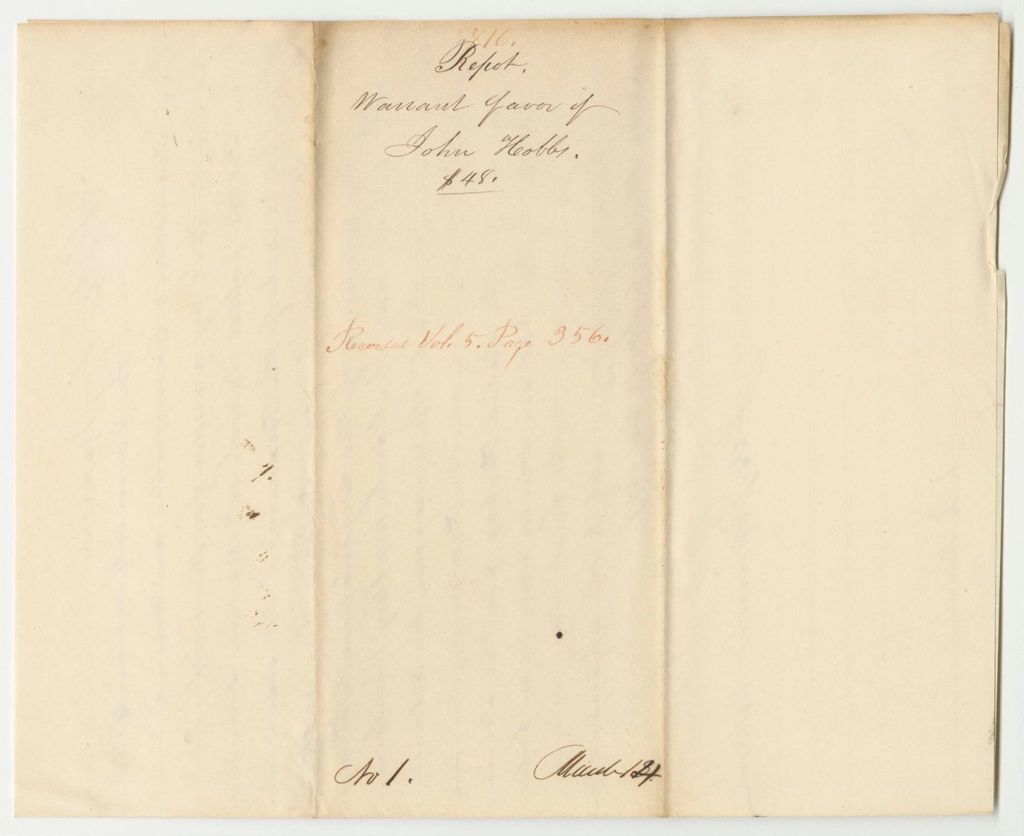 716.
Repot.
Warrant favor of
John Hobbs.
$48.
Recorded Vol. 5. Page 356.
No 1.
March